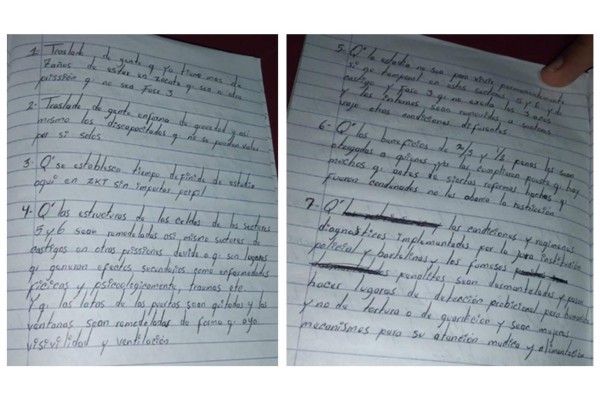 1- Traslado de gente q ya tiene mas de
7 años de estar en Zacate q sea a otra
prissión q no sea Fase 3
2- Traslado de gente enferma de gravedad y asi
mismo los discapacitados q no se puedan valer
por si solos
3- Q' se establesca tiempo definido de estadia
aqui en ZKT sin importar perfil
4- Q' las estructuras de las celdas de los sectores
5 y 6 sean remodeladas asi mismo sectores de
castigos en otras prissiones devido a q son lugares
q generan efectos secundarios como enfermedades
ficicas y psicologicamente, traumas etc.
Y q las latas de las puertas sean quitadas y las
ventanas sean remodeladas de forma q aya
visivilidad y ventilación
5- Q' la estadia no sea para vivir permanentemente
si no temporal en estos sectores
castigo y Fase 3 q no exeda los 3 años
y los internos sean reguidos a sectores
vajo otras condiciones diferentes
6- Q' los beneficios de 2/3 y 1/2 penas les sean
otorgados a quienes ya las cumplieron puesto q hay
muchos q antes de siertas reformas
fueron condenados no les abarca la restricción
7- Q' las condiciones y regimenes
diagnosticos implementados por la institución
policial y bartolinas y los famosos
penalitos sean desmantelados y
hacer lugares de detención probicional para
y no de tortura o de y sean mejores
mecanismos para su atención medica y alimentación